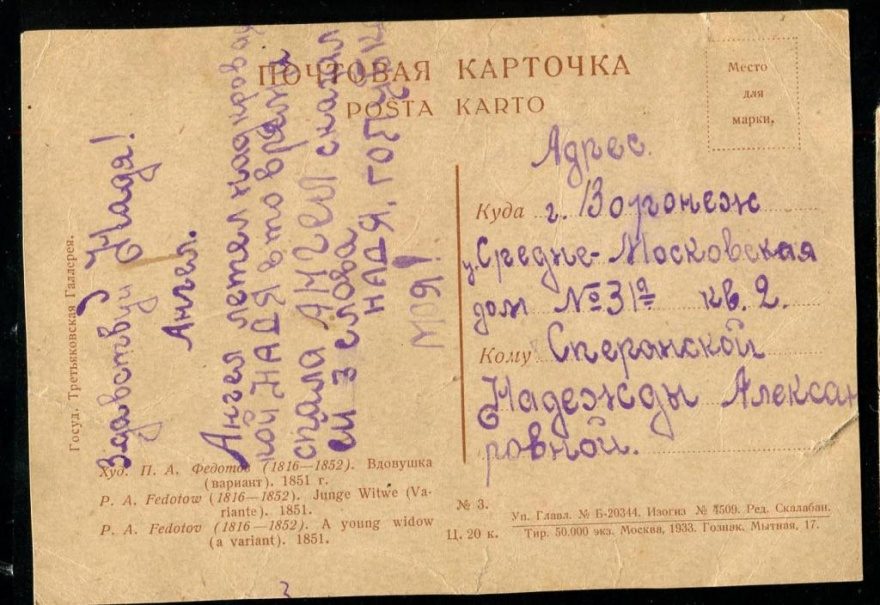 ПОЧТОВАЯ КАРТОЧКА
POŜTA KARTO
Место
для
марки.
Адрес.
Куда г. Воронеж
у. Средне-Московская
дом № 31а кв. 2.
Кому Сперанской
Надежды Алексан
ровной.
Госуд. Третьяковская Галлерея.
Здавствуй Надя!
Ангел.
Ангел летел над кроват
кой НАДЯ в то время
спала АНГЕЛ сказал
ей 3 слова
НАДЯ,
МОЯ!
Худ. П. А. Федотов (1816—1852). Вдовушка
(вариант). 1851 г.
P. A. Fedotow (1816—1852). Junge Witwe (Va-
riante). 1851.
P. A. Fedotov (1816—1852). A young widow
(a variant). 1851.
№ 3.
Ц. 20 к.
Уп. Главл. № Б-20344. Изогиз № 4509. Ред. Скалабан.
Тир. 50.000 экз. Москва, 1933. Гознак. Мытная, 17.